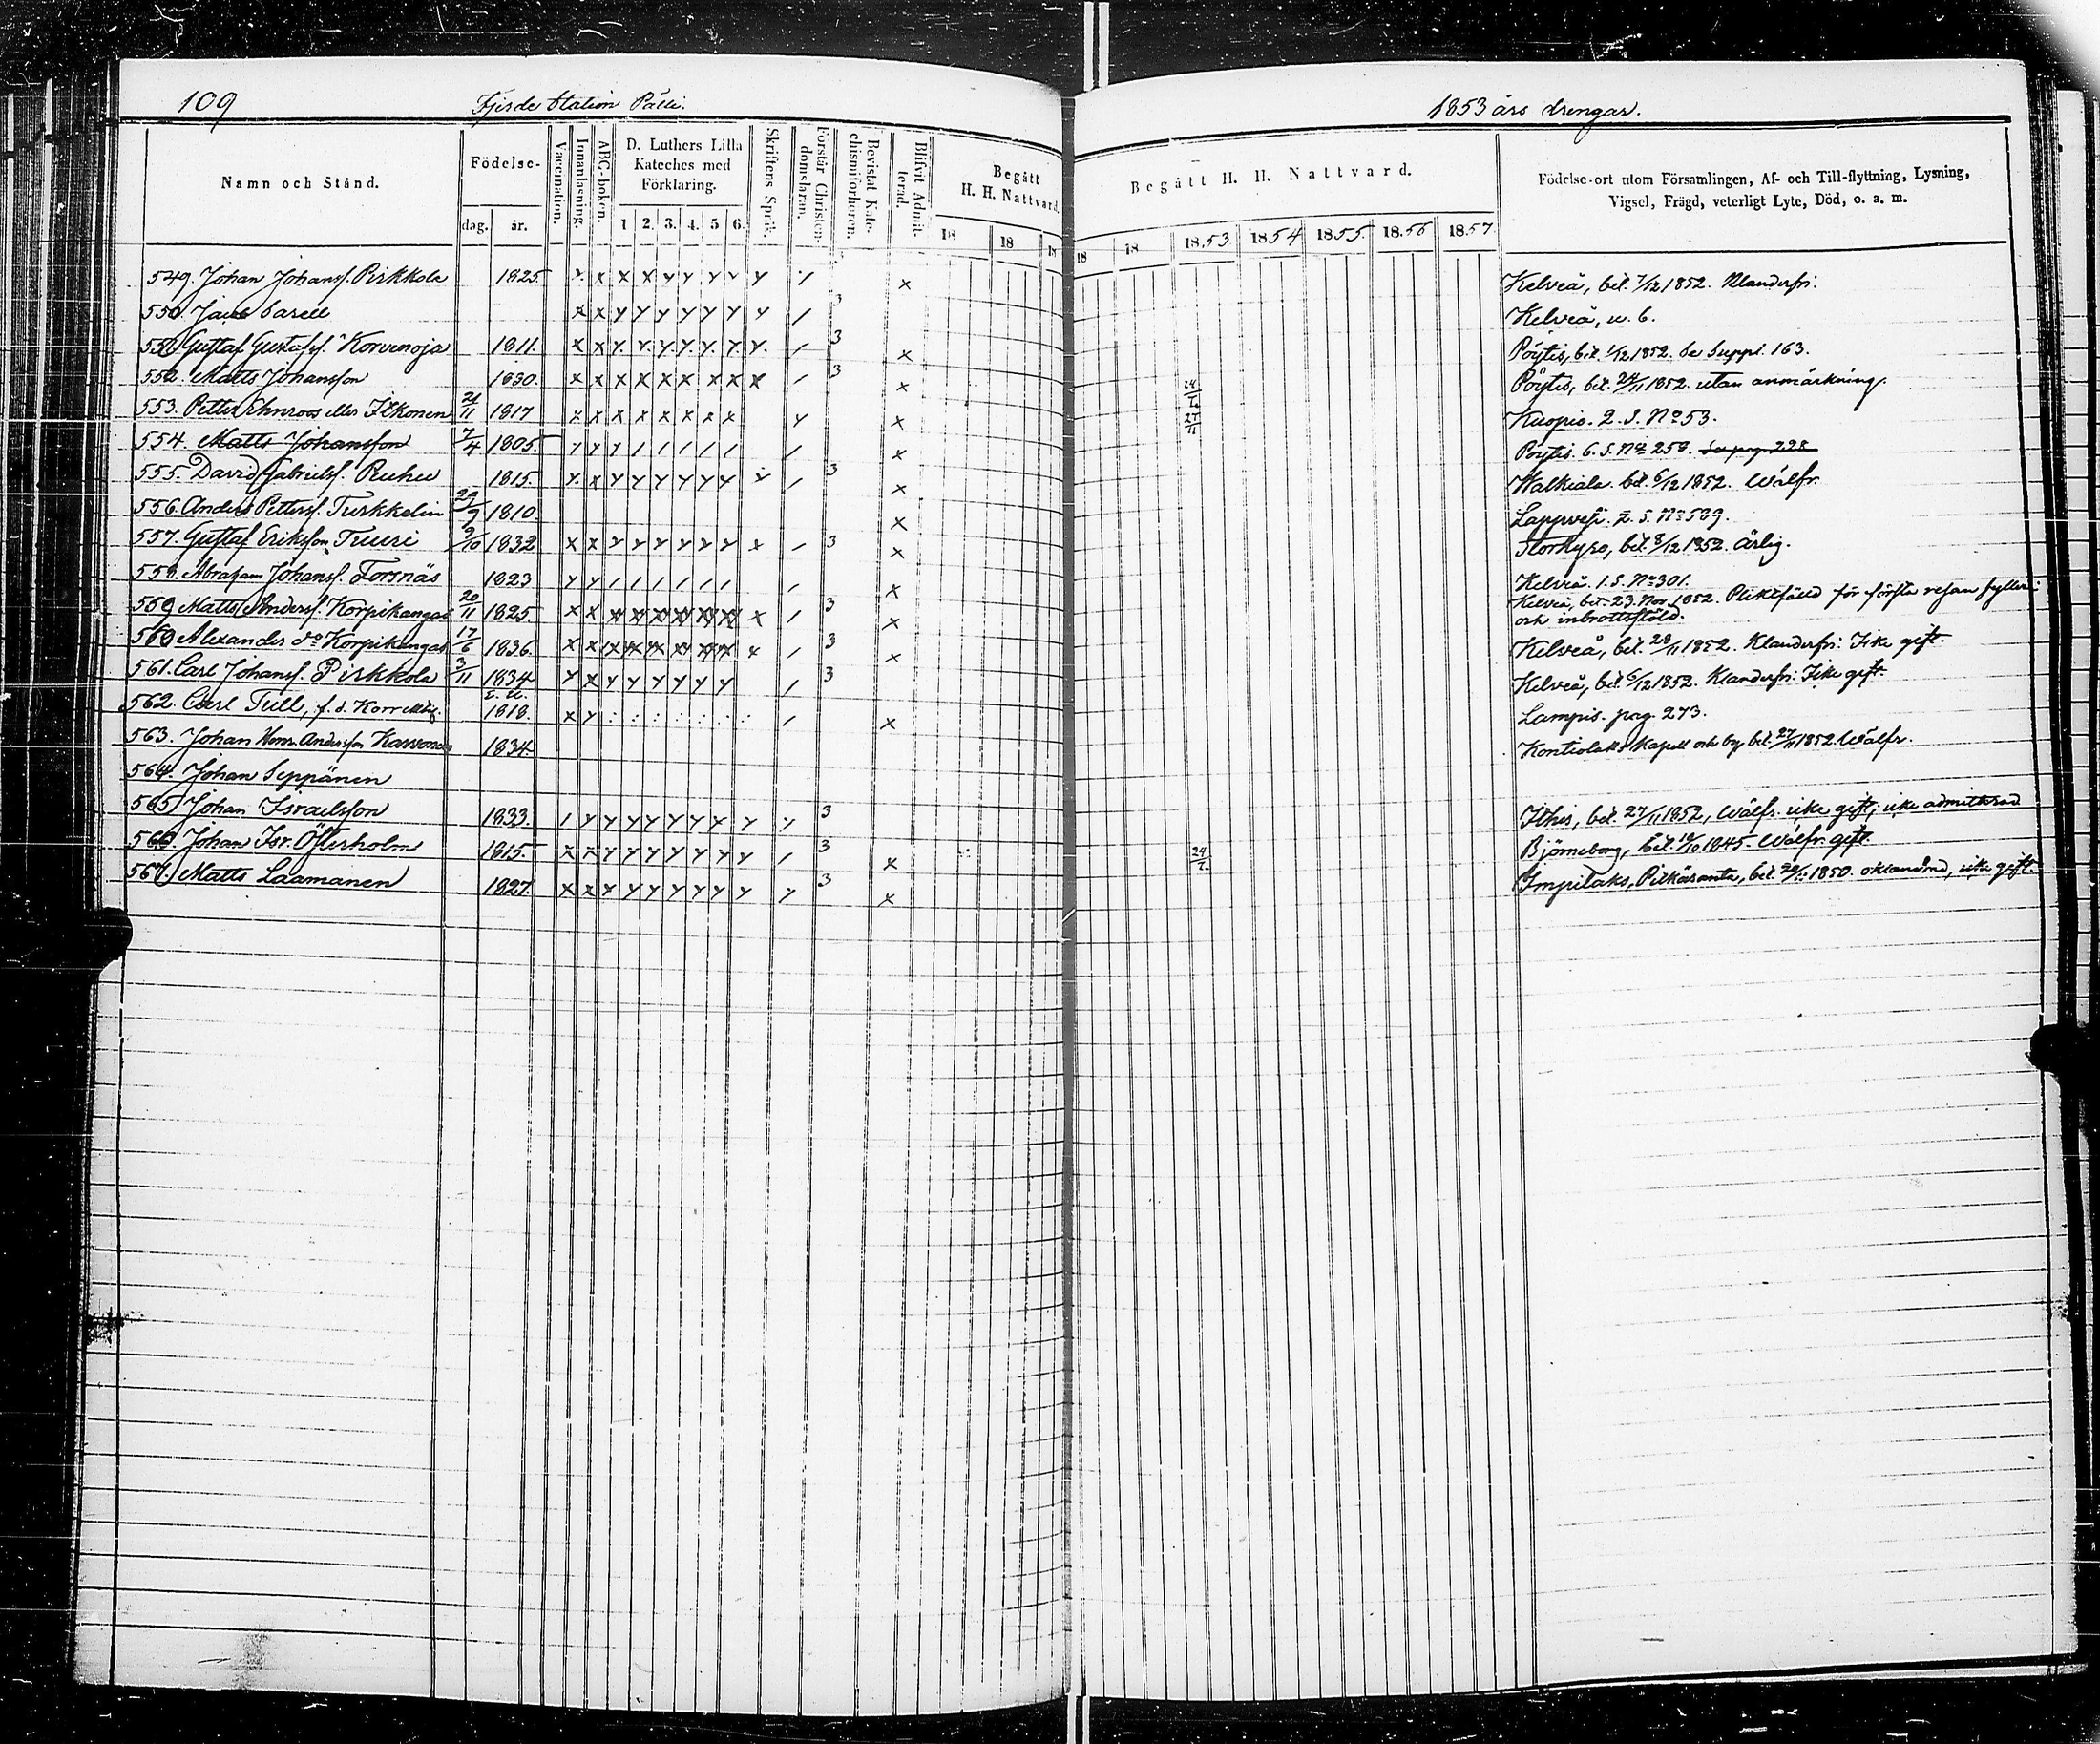 109 Fjerde Station Pälli. 1853 års drengar.
Namn och Stånd. Födelse- dag. år. Vaccination. Innanläsning. ABC-boken. D. Luthers Lilla Kateches med Förklaring. 1 2. 3. 4. 5 6. Skriftens Språk. Förstår Christendomsläran. Bevistat Katechismiförhören. Blifvit Admitterad. Begått H. H. Nattvard. 18 18 18
Begått H. H. Nattvard. 18 18 1853 1854 1855. 1856 1857 Födelse-ort utom Församlingen, Af- och Till-flyttning, Lysning, Vigsel, Frägd, veterligt Lyte, Död, o. a. m.
549. Johan Johanss. Pirkkola 1825 Kelveå, bet. 7/12 1852. Klanderfri.
550. Jacob Sarell 3 Kelveå, u. b.
551 Gustaf Gustafss. Korvenoja 1811. 3 Pöytis, bet. 1/12 1852. Se Suppl. 163.
552. Matts Johansson 1830. 3 24/7. Pöytis, bet. 24/11 1852. utan anmärkning.
553. Petter Ehnroos eller Ilkonen 21/11 1817 27/11 Kuopio. 2. S. No 53.
554. Matts Johansson 7/4 1805. Pöytis. 6. S. No 259. Se pag. 228
555. David Gabrielss. Ruhu 1815. 3 Walkiala. bet. 6/12 1852. Wälfr.
556. Anders Petterss. Turkkelin 29/9 1810. Lappvesi. 2. S. No 589.
557. Gustaf Eriksson Truuri 9/10 1832 3 Storkyro, bet. 8/12 1852. Ärlig.
558. Abraham Johanss. Forsnäs 1823 Kelveå. 1. S. No 301.
559 Matts Anderss. Korpikangas 20/11 1825. 3 Kelveå, bet. 23. Nov. 1852. Pliktfälld för första resan fylleri
och inbrottsstöld.
560 Alexander do Korpikangas 17/6 1836. 3 Kelveå, bet. 28/11 1852. Klanderfri. Icke gift.
561. Carl Johanss. Pirkkola 3/11 1834 3 Kelveå, bet. 6/12 1852. Klanderfri. Icke gift.
562. Carl Tull, f. d. 1818. Lampis. pag. 273.
563. Johan Henr. Andersson Karvonen 1834. Kontiolaks Kapell och by bet. 27/11 1852 Wälfr.
564. Johan Seppänen
565 Johan Israelsson 1833. 3 Ithis, bet. 27/11 1852, Wälfr. icke gift, icke admitterad
566. Johan Isr. Österholm 1815. 3 24/7. Björneborg, bet. 19/10 1845. Wälfr. gift.
567. Matts Laamanen 1827. 3 Impilaks, Pitkäranta, bet. 26/11 1850. oklandrad, icke gift.